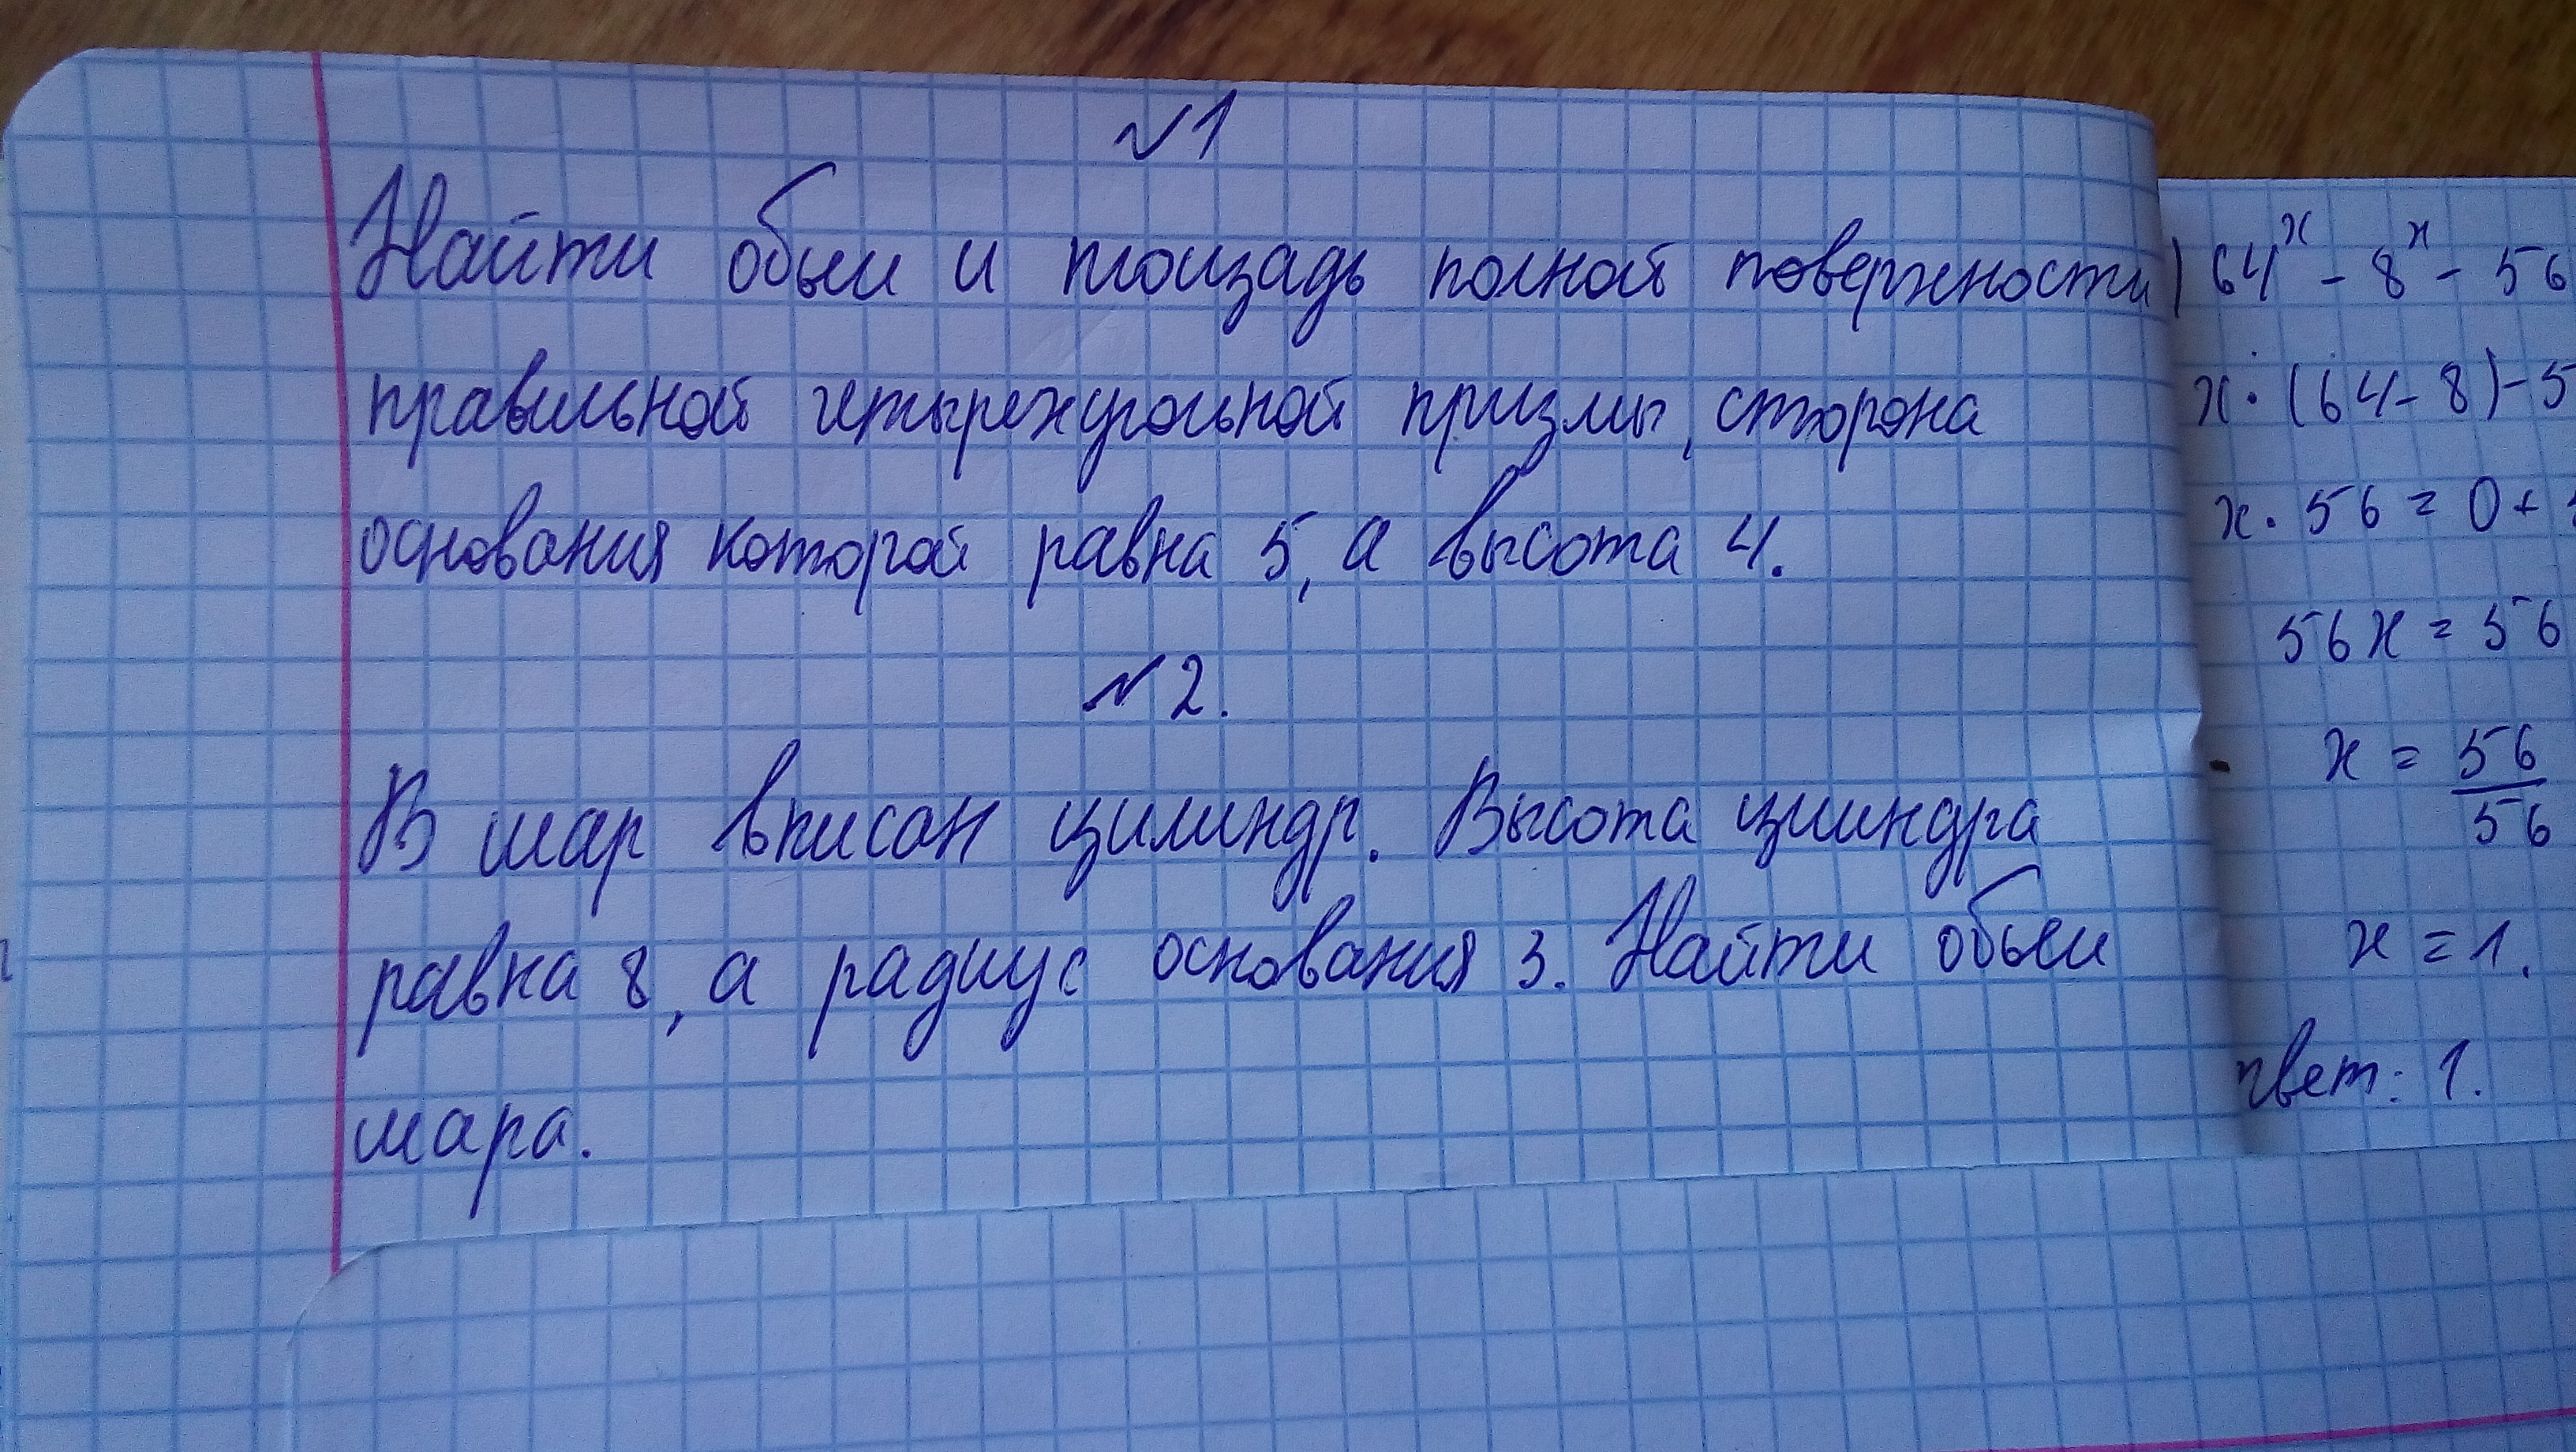 №1
Найти обьем и площадь полной поверхности
правильной четырехугольной призмы, сторона
основания которой равна 5, а высота 4.
№2.
В шар вписан цилиндр. Высота цилиндра
равна 8, а радиус основания 3. Найти обьем
шара.
) 64ˣ - 8ˣ - 56
x · (64 - 8) - 5
x · 56 = 0 +
56x = 56
x = 56/56
x = 1.
твет: 1.